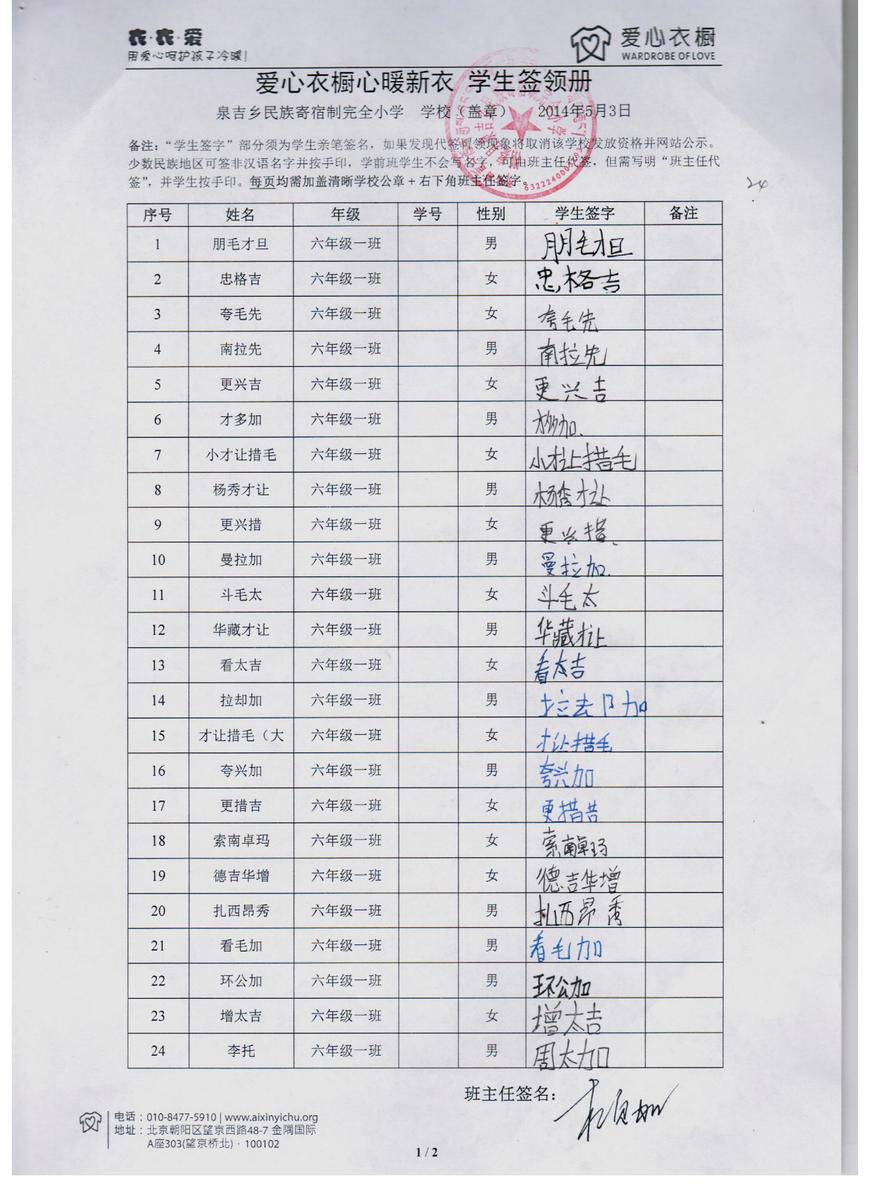 衣·衣·爱
用爱心呵护孩子冷暖!
爱心衣橱
WARDROBE OF LOVE
爱心衣橱心暖新衣 学生签领册
泉吉乡民族寄宿制完全小学 学校（盖章） 2014年5月3日
备注："学生签字"部分须为学生亲笔签名，如果发现代签冒领现象将取消该学校发放资格并网站公示。
少数民族地区可签非汉语名字并按手印，学前班学生不会写名字，可由班主任代签，但需写明"班主任代
签"，并学生按手印。每页均需加盖清晰学校公章+右下角班主任签字。
24
序号 姓名 年级 学号 性别 学生签字 备注
1 朋毛才旦 六年级一班 男 朋毛才旦
2 忠格吉 六年级一班 女 忠格吉
3 夸毛先 六年级一班 女 夸毛先
4 南拉先 六年级一班 男 南拉先
5 更兴吉 六年级一班 女 更兴吉
6 才多加 六年级一班 男 才多加.
7 小才让措毛 六年级一班 女 小才让措毛
8 杨秀才让 六年级一班 男 杨秀才让
9 更兴措 六年级一班 女 更兴措.
10 曼拉加 六年级一班 男 曼拉加.
11 斗毛太 六年级一班 女 斗毛太
12 华藏才让 六年级一班 男 华藏才让
13 看太吉 六年级一班 女 看太吉
14 拉却加 六年级一班 男 拉却加
15 才让措毛（大 六年级一班 女 才让措毛
16 夸兴加 六年级一班 男 夸兴加
17 更措吉 六年级一班 女 更措吉
18 索南卓玛 六年级一班 女 索南卓玛
19 德吉华增 六年级一班 女 德吉华增
20 扎西昂秀 六年级一班 男 扎西昂秀
21 看毛加 六年级一班 男 看毛加
22 环公加 六年级一班 男 环公加
23 增太吉 六年级一班 女 增太吉
24 李托 六年级一班 男 周太加
班主任签名：
电话：010-8477-5910 | www.aixinyichu.org
地址：北京朝阳区望京西路48-7 金隅国际
A座303(望京桥北)·100102
1 / 2